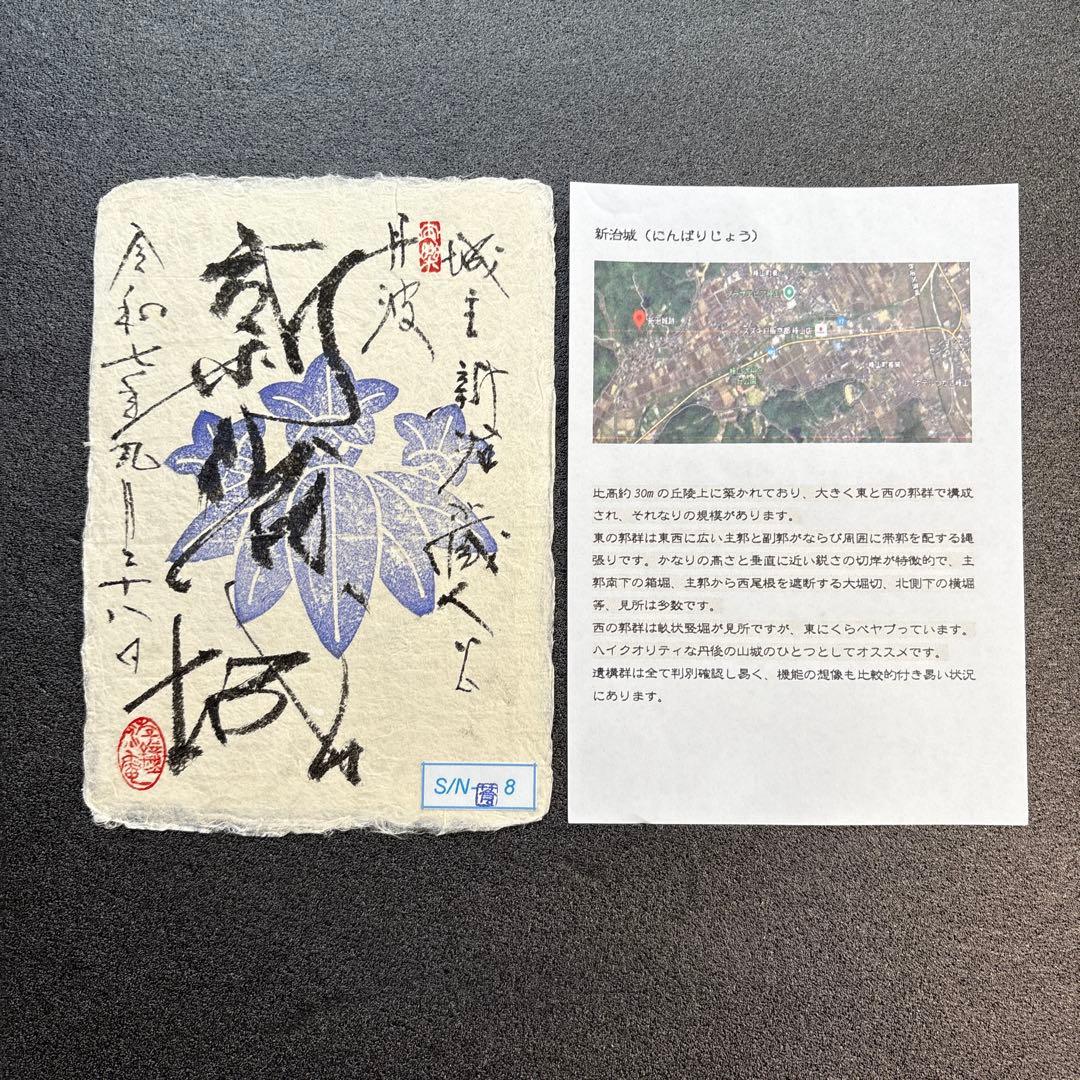 城主新庄蔵人公
丹波
新治城
令和七年九月二十八日
S/N- 8
新治城（にんばりじょう）
新治城跡
比高約30mの丘陵上に築かれており、大きく東と西の郭群で構成
され、それなりの規模があります。
東の郭群は東西に広い主郭と副郭がならび周囲に帯郭を配する縄
張りです。かなりの高さと垂直に近い鋭さの切岸が特徴的で、主
郭南下の箱堀、主郭から西尾根を遮断する大堀切、北側下の横堀
等、見所は多数です。
西の郭群は畝状竪堀が見所ですが、東にくらべヤブっています。
ハイクオリティな丹後の山城のひとつとしてオススメです。
遺構群は全て判別確認し易く、機能の想像も比較的付き易い状況
にあります。